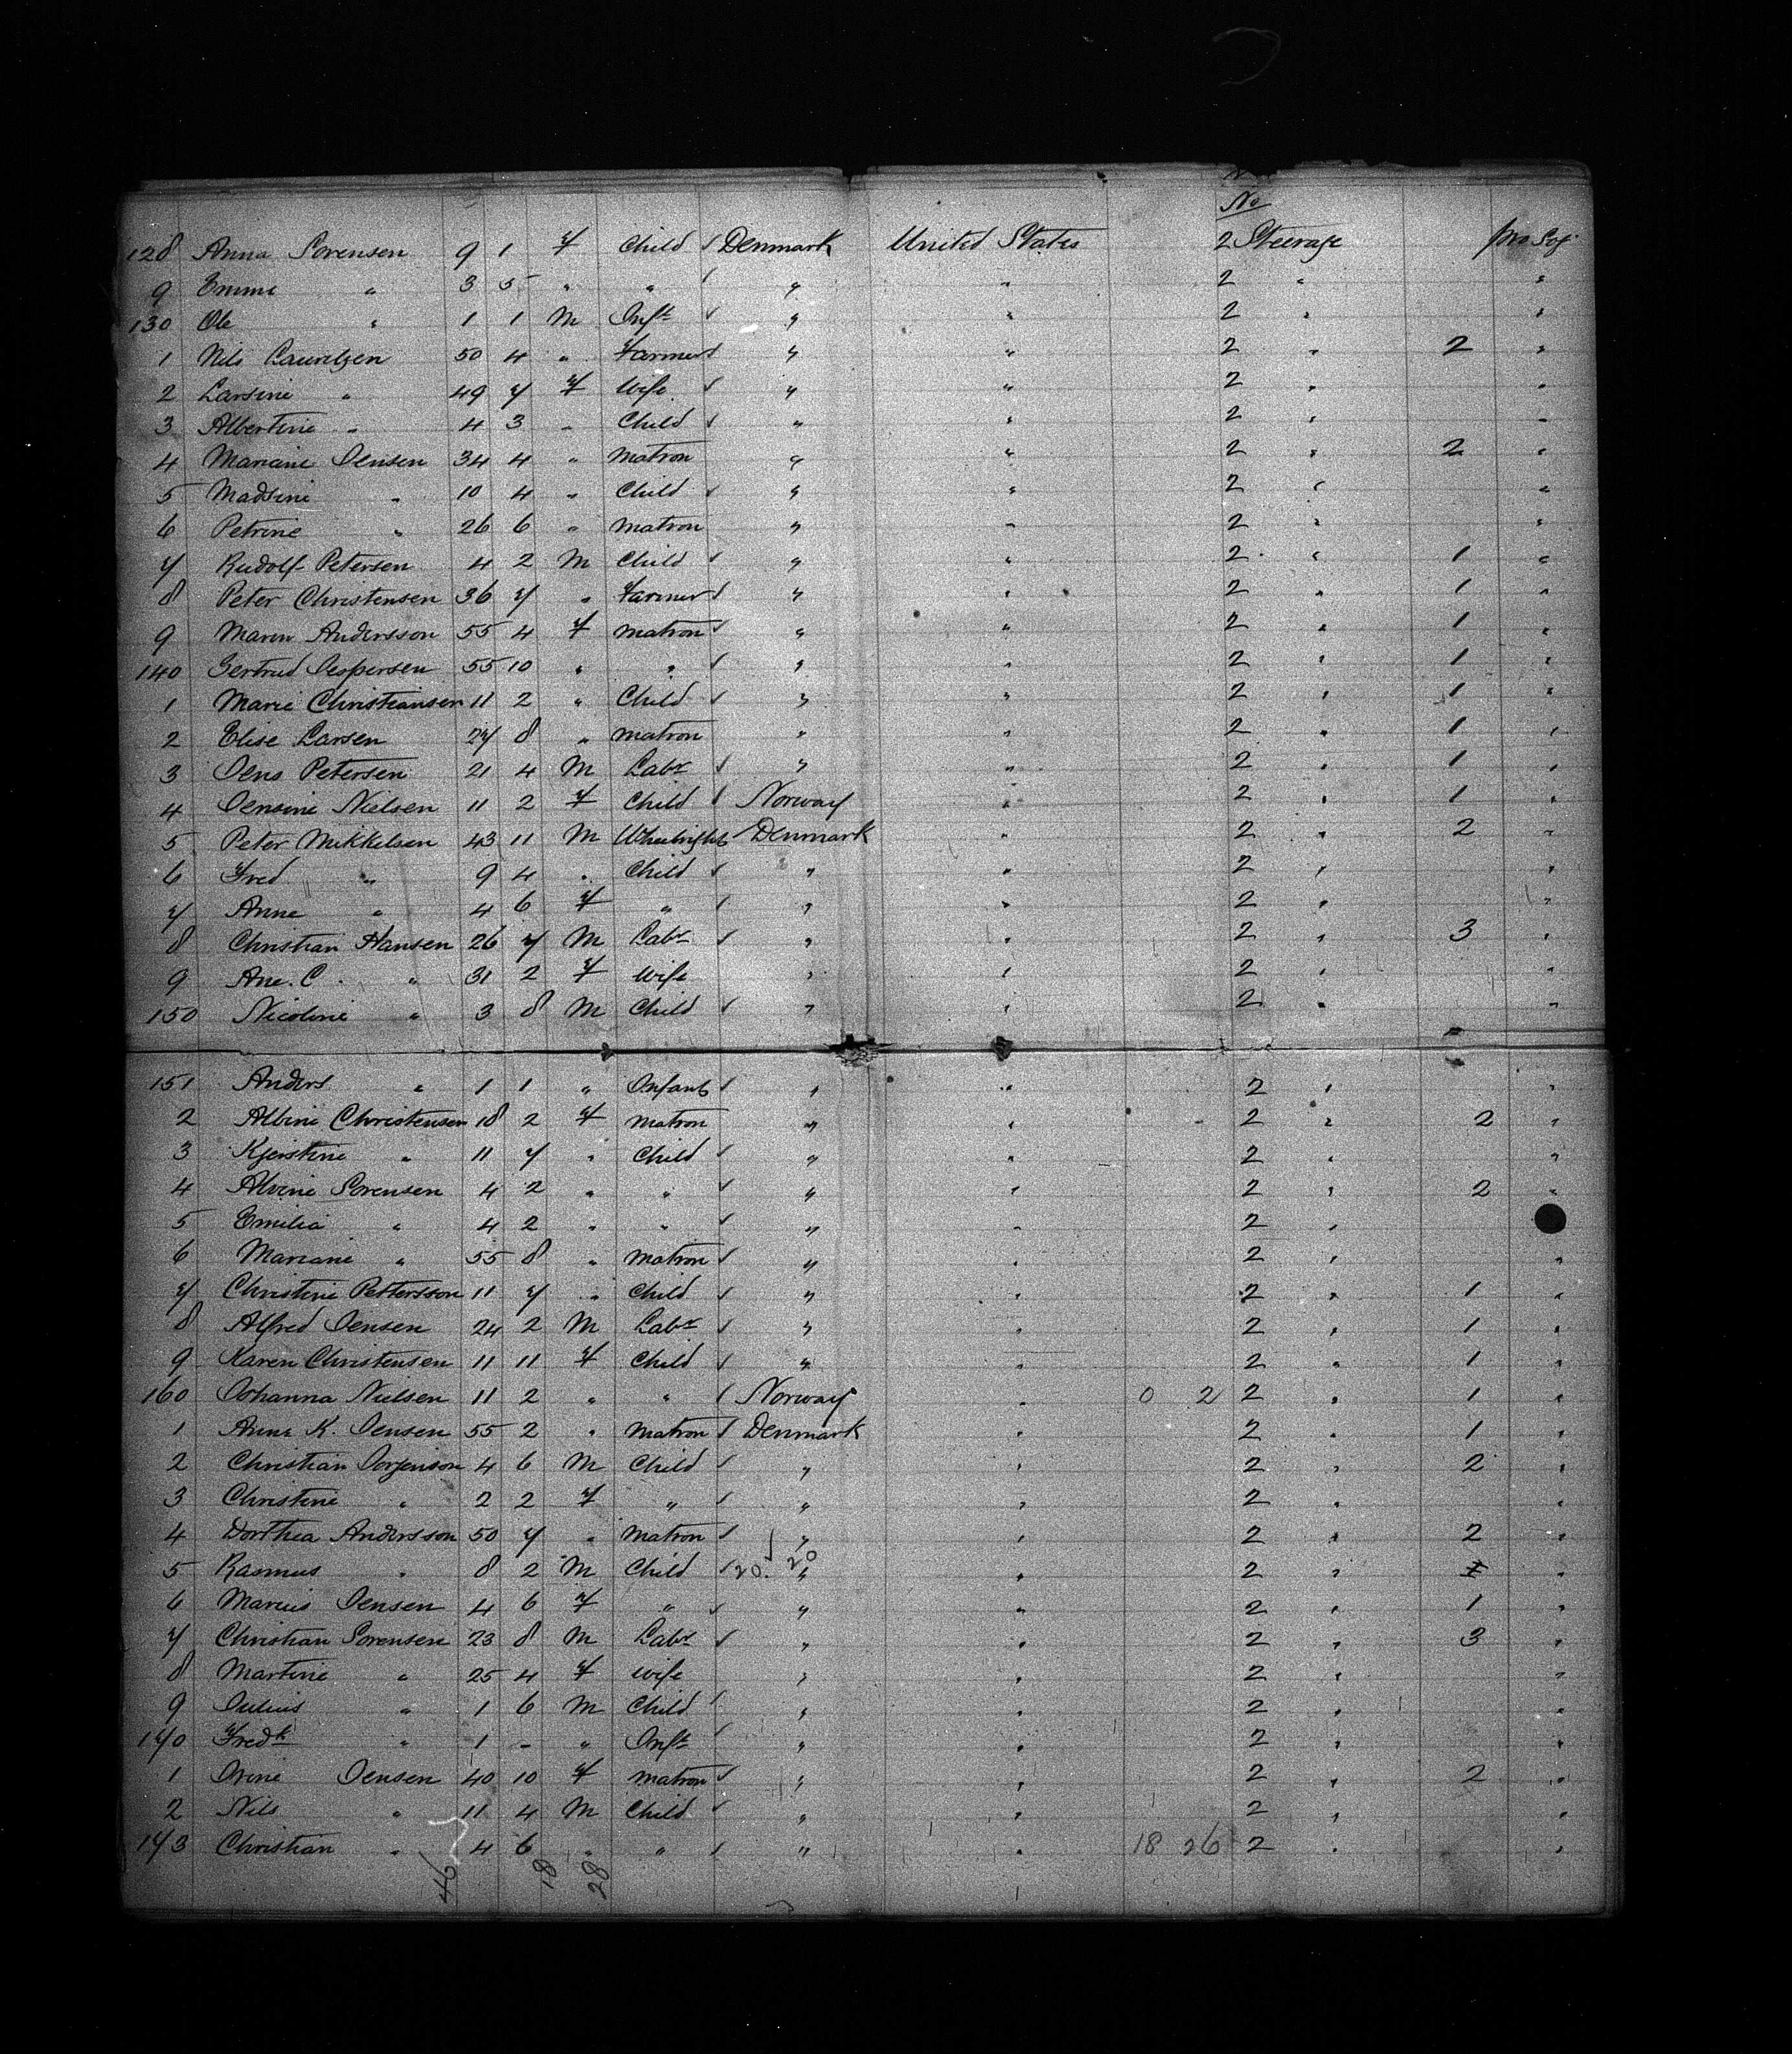 No
128 Anna Sorensen 9 1 F Child ✓ Denmark United States 2 Steerage pro Soj
9 Emma " 3 5 " " ✓ " " 2 " "
130 Ole " 1 1 M Inft ✓ " " 2 " "
1 Nils Lauritzen 50 4 " Farmer ✓ " " 2 " 2 "
2 Larsine " 49 7 F Wife ✓ " " 2 " "
3 Albertine " 4 3 " Child ✓ " " 2 " "
4 Mariane Jensen 34 4 " Matron " " 2 " 2 "
5 Madsine " 10 4 " Child ✓ " " 2 " "
6 Petrine " 26 6 " Matron " " 2 " "
7 Rudolf Petersen 4 2 M Child ✓ " " 2 " 1 "
8 Peter Christensen 36 7 " Farmer ✓ " " 2 " 1 "
9 Maren Andersson 55 4 F Matron ✓ " " 2 " 1 "
140 Gertrud Jespersen 55 10 " " ✓ " " 2 " 1 "
1 Marie Christiansen 11 2 " Child ✓ " " 2 " 1 "
2 Elise Larsen 27 8 " Matron " " 2 " 1 "
3 Jens Petersen 21 4 M Labr ✓ " " 2 " 1 "
4 Jensine Nielsen 11 2 F Child ✓ Norway " 2 " 1 "
5 Peter Mikkelsen 43 11 M Wheelright ✓ Denmark " 2 " 2 "
6 Fred " 9 4 " Child ✓ " " 2 " "
7 Anne " 4 6 F " ✓ " " 2 " "
8 Christian Hansen 26 7 M Labr ✓ " " 2 " 3 "
9 Ane. C. " 31 2 F Wife " " 2 " "
150 Nicoline " 3 8 M Child ✓ " " 2 " "
151 Anders " 1 1 " Infant ✓ " " 2 " "
2 Albine Christensen 18 2 F Matron " " 2 " 2 "
3 Kjerstine " 11 7 " Child ✓ " " 2 " "
4 Alvine Sorensen 4 2 " " ✓ " " 2 " 2 "
5 Emilia " 4 2 " " ✓ " " 2 "
6 Mariane " 55 8 " Matron ✓ " " 2 " "
7 Christine Pettersson 11 7 " Child ✓ " " 2 " 1 "
8 Alfred Jensen 24 2 M Labr ✓ " " 2 " 1 "
9 Karen Christensen 11 11 F Child ✓ " " 2 " 1 "
160 Johanna Nielsen 11 2 " " ✓ Norway " 0 2 2 " 1 "
1 Anne K. Jensen 55 2 " Matron ✓ Denmark " 2 " 1 "
2 Christian Jorjenson 4 6 M Child ✓ " " 2 " 2 "
3 Christine " 2 2 F " ✓ " " 2 " "
4 Dorthea Andersson 50 7 " Matron ✓ " " 2 " 2 "
5 Rasmus " 8 2 M Child ✓ 20. 20 " " 2 " "
6 Marius Jensen 4 6 F " ✓ " " 2 " 1 "
7 Christian Sorensen 23 8 M Labr ✓ " " 2 " 3 "
8 Martine " 25 4 F Wife " " 2 " "
9 Julius " 1 6 M Child ✓ " " 2 " "
170 Fredk " 1 - " Inft ✓ " " 2 " "
1 Irine Jensen 40 10 F Matron ✓ " " 2 " 2 "
2 Nils " 11 4 M Child ✓ " " 2 " "
173 Christian " 4 6 " " ✓ " " 18 26 2 " "
46 18 28